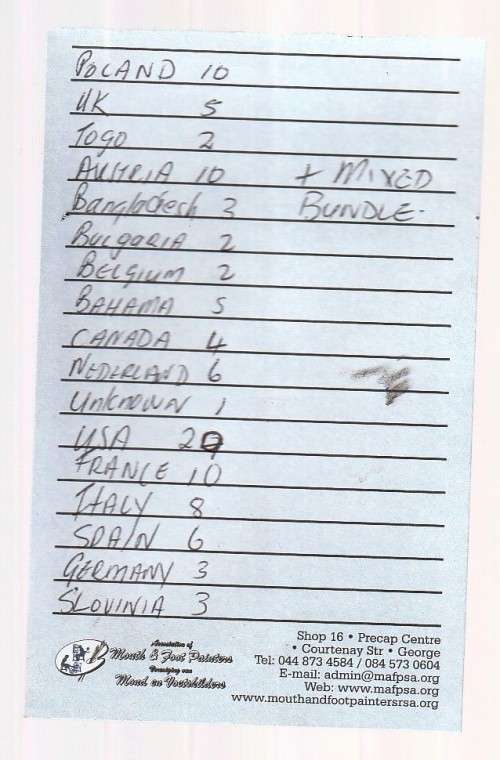 POLAND 10
UK 5
TOGO 2
AUSTRIA 10 + MIXED
Bangladesh 3 BUNDLE-
Bulgaria 2
BELGIUM 2
BAHAMA 5
CANADA 4
NEDERLAND 6
UNKNOWN 1
USA 29
FRANCE 10
ITALY 8
SPAIN 6
GERMANY 3
SLOVINIA 3
Association of
Mouth & Foot Painters
Vereniging van
Mond en Voetskilders
Shop 16 • Precap Centre
• Courtenay Str • George
Tel: 044 873 4584 / 084 573 0604
E-mail: admin@mafpsa.org
Web: www.mafpsa.org
www.mouthandfootpaintersrsa.org